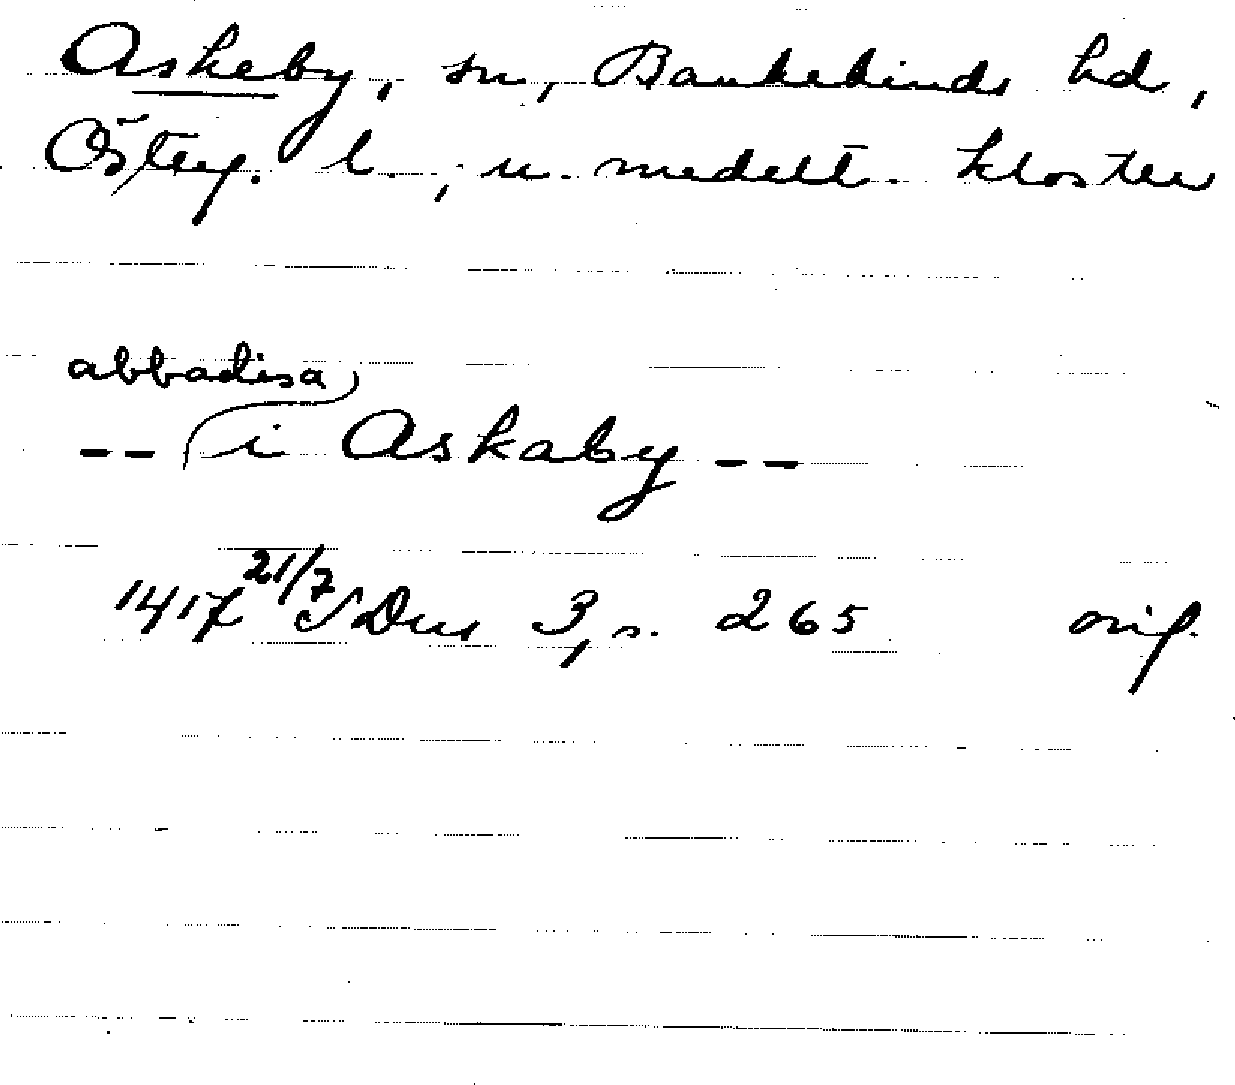 Askeby, sn, Bankekinds hd,
Österg. l., u. medelt. kloster
abbadisa
-- i Askaby --
1417 21/7 SDns 3, s. 265 orig.